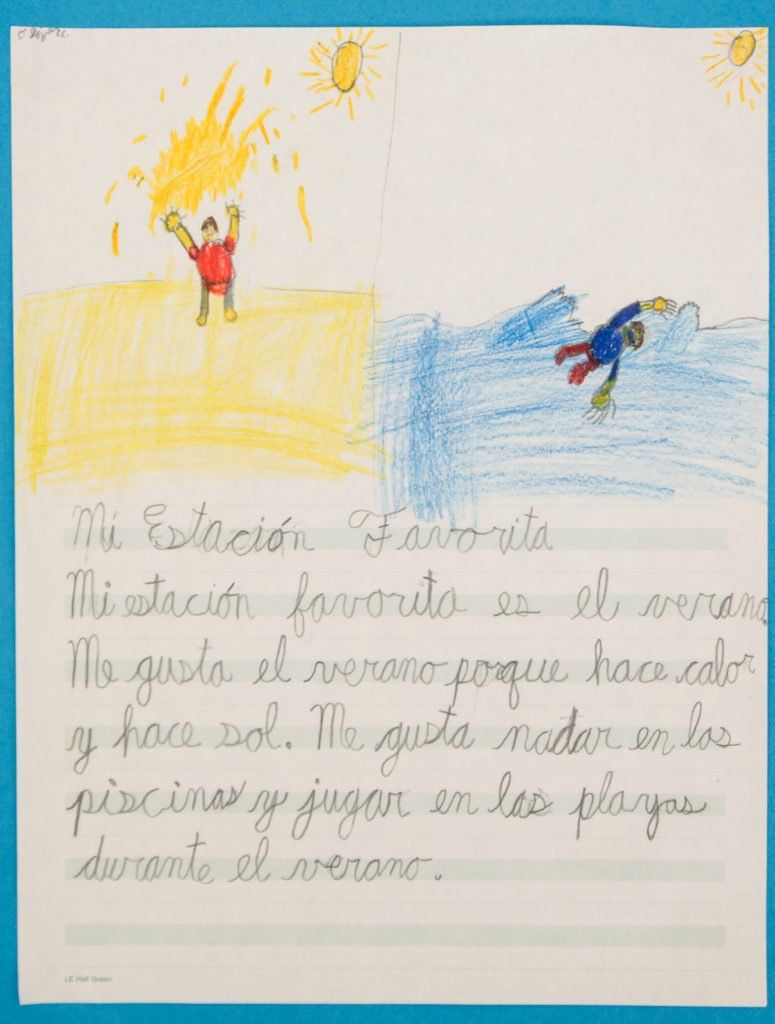 Mi Estación Favorita
Mi estación favorita es el verano.
Me gusta el verano porque hace calor
y hace sol. Me gusta nadar en las
piscinas y jugar en las playas
durante el verano.
LE Half Green